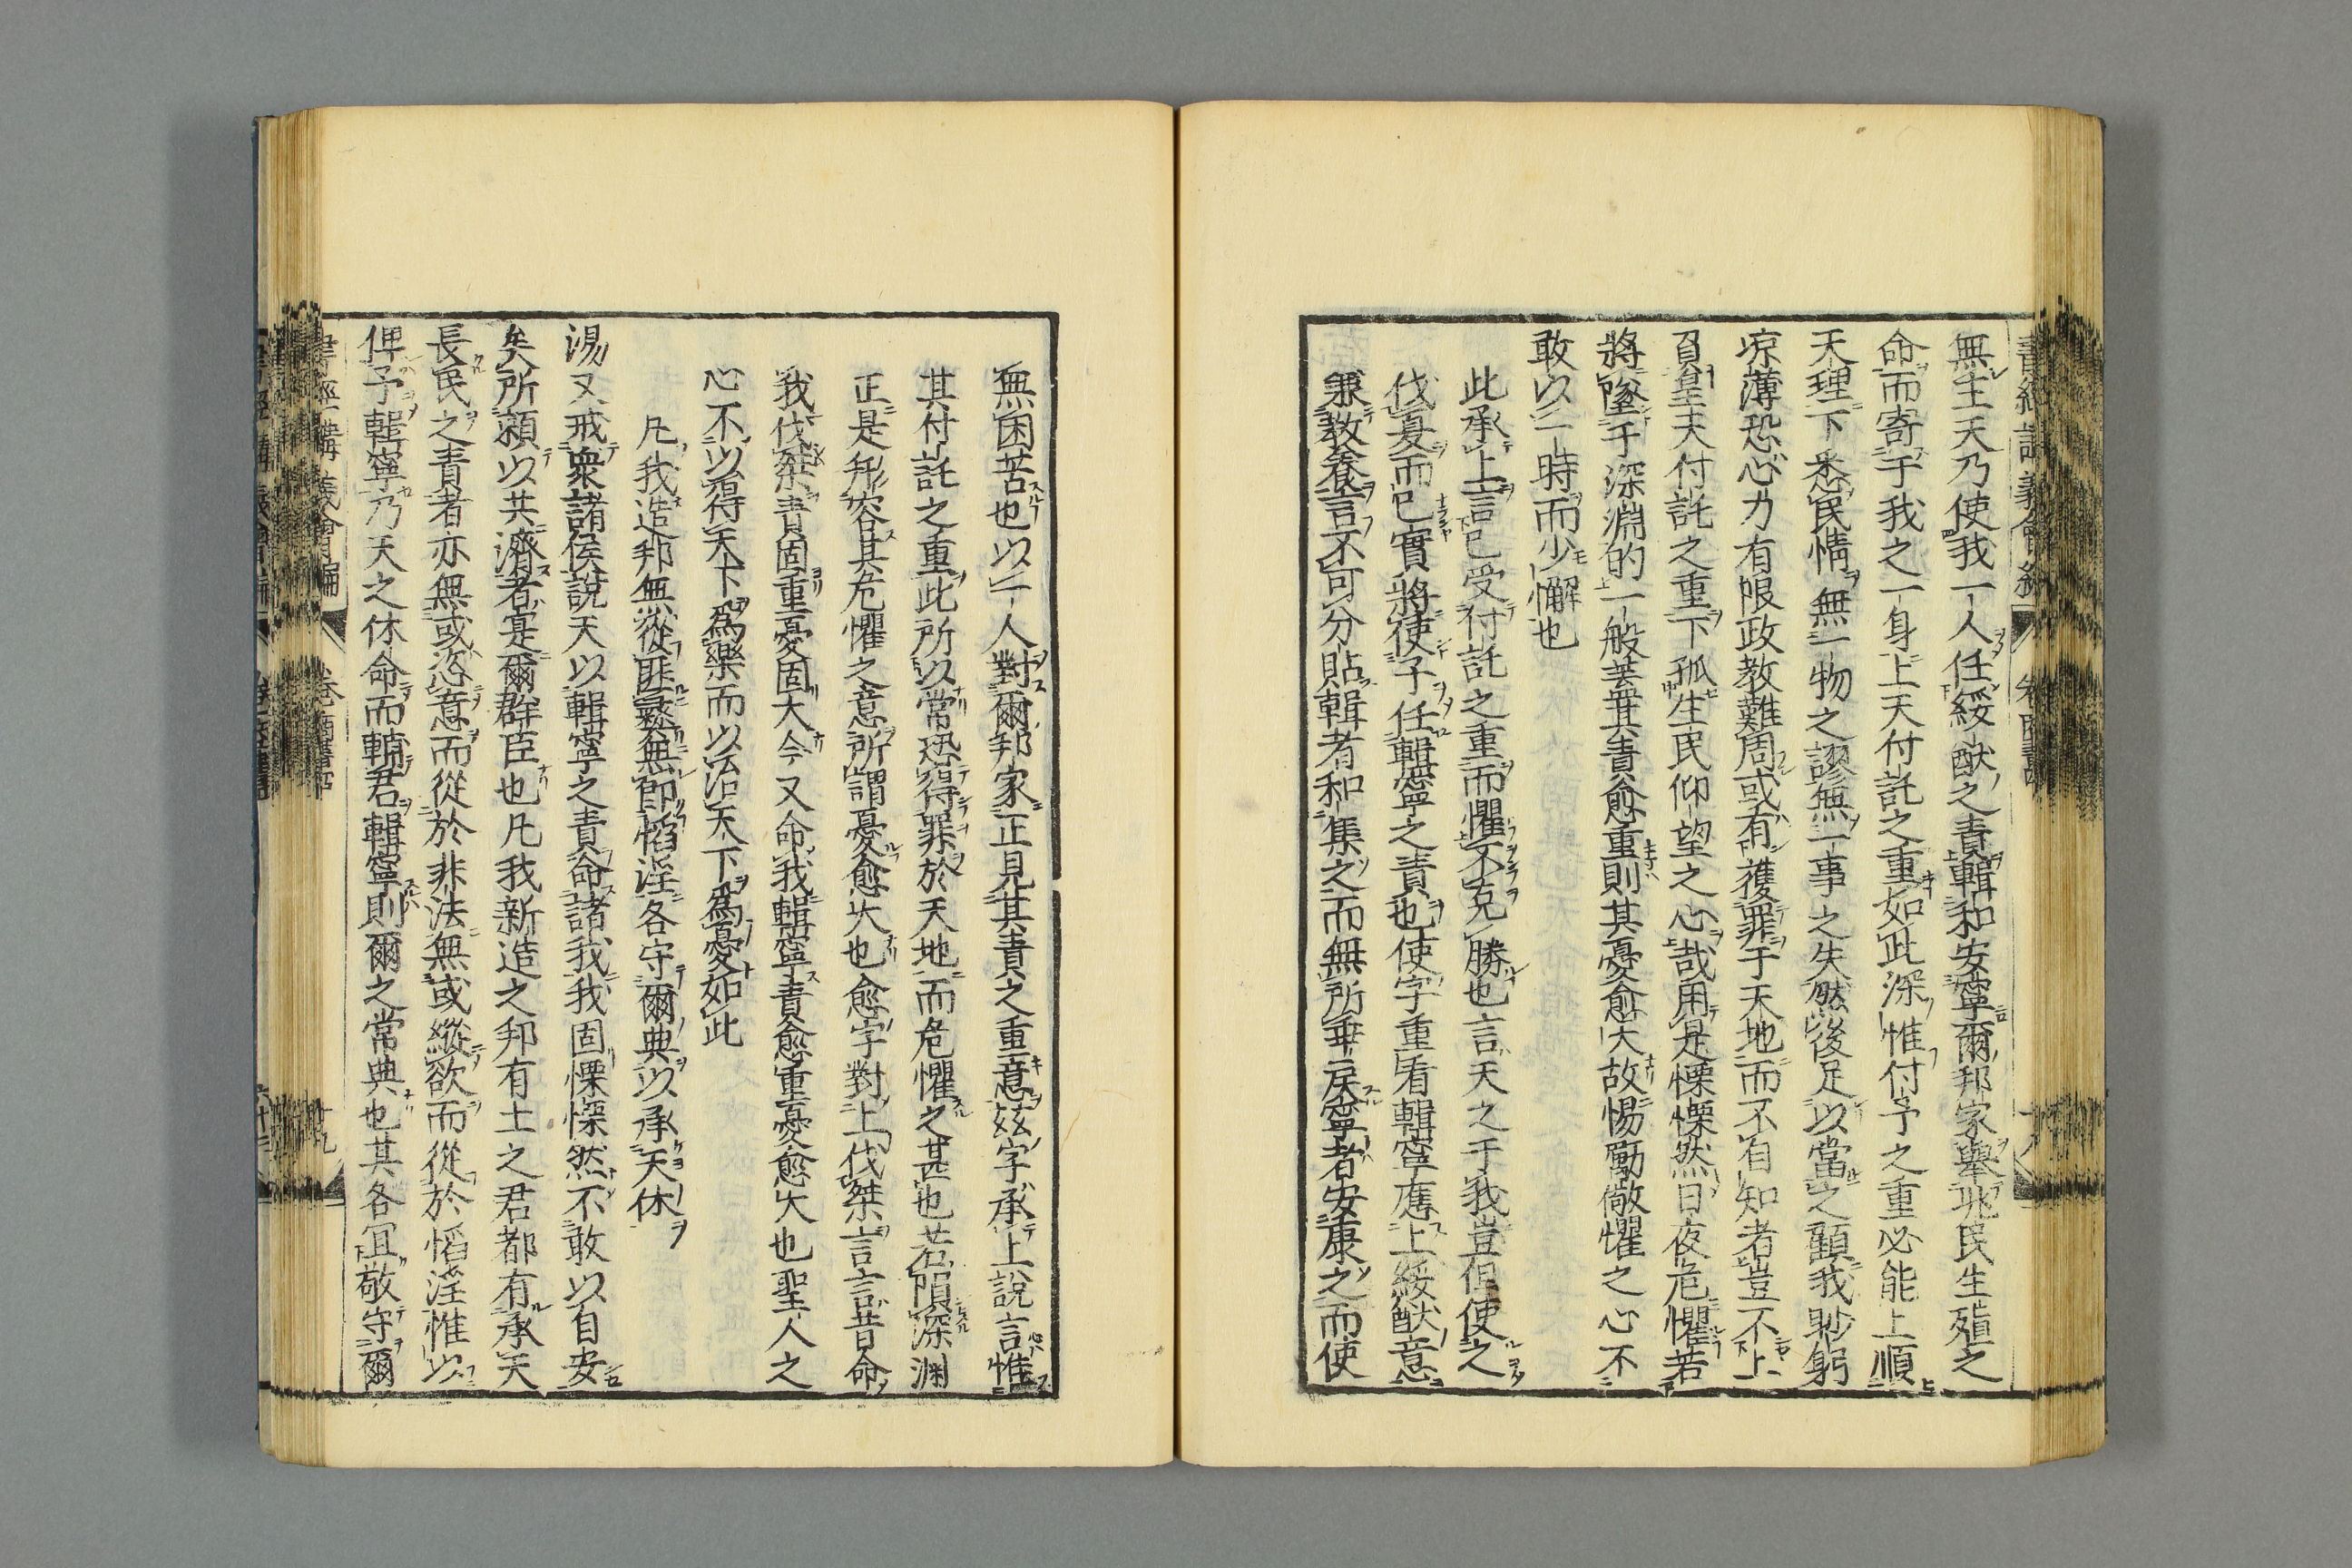 無主天乃使我一人任綏猷之責輯和安寧爾邦家舉兆民生殖之
命而寄于我之一身上天付託之重如此深惟付予之重必能上順
天理下悉民情無一物之謬無一事之失然後足以當之顧我眇躬
凉薄恐心力有限政教難周或有獲罪于天地而不自知者豈不上
負皇天付託之重下孤生民仰望之心哉用是慄慄然日夜危懼若
將墜于深淵的一般葢其責愈重則其憂愈大故惕勵儆懼之心不
敢以一時而少懈也
此承上言已受付託之重而懼不克勝也言天之于我豈但使之
伐夏而已實將使予任輯寧之責也使字重看輯寧應上綏猷意
兼教養言不可分貼輯者和集之而無所乖戾寧者安康之而使
無困苦也以一人對爾邦家正見其責之重意茲字承上說言惟
其付託之重此所以常恐得罪於天地而危懼之甚也若隕深淵
正是形容其危懼之意所謂憂愈大也愈字對上伐桀言言昔命
我伐桀責固重憂固大今又命我輯寧責愈重憂愈大也聖人之
心不以得天下爲樂而以治天下爲憂如此
凡我造邦無從匪彝無即慆淫各守爾典以承天休
湯又戒衆諸侯說天以輯寧之責命諸我我固慄慄然不敢以自安
矣所頼以共濟者寔爾群臣也凡我新造之邦有土之君都有承天
長民之責者亦無或恣意而從於非法無或縱欲而從於慆淫惟以
俾予輯寧乃天之休命而輔君輯寧則爾之常典也其各宜敬守爾